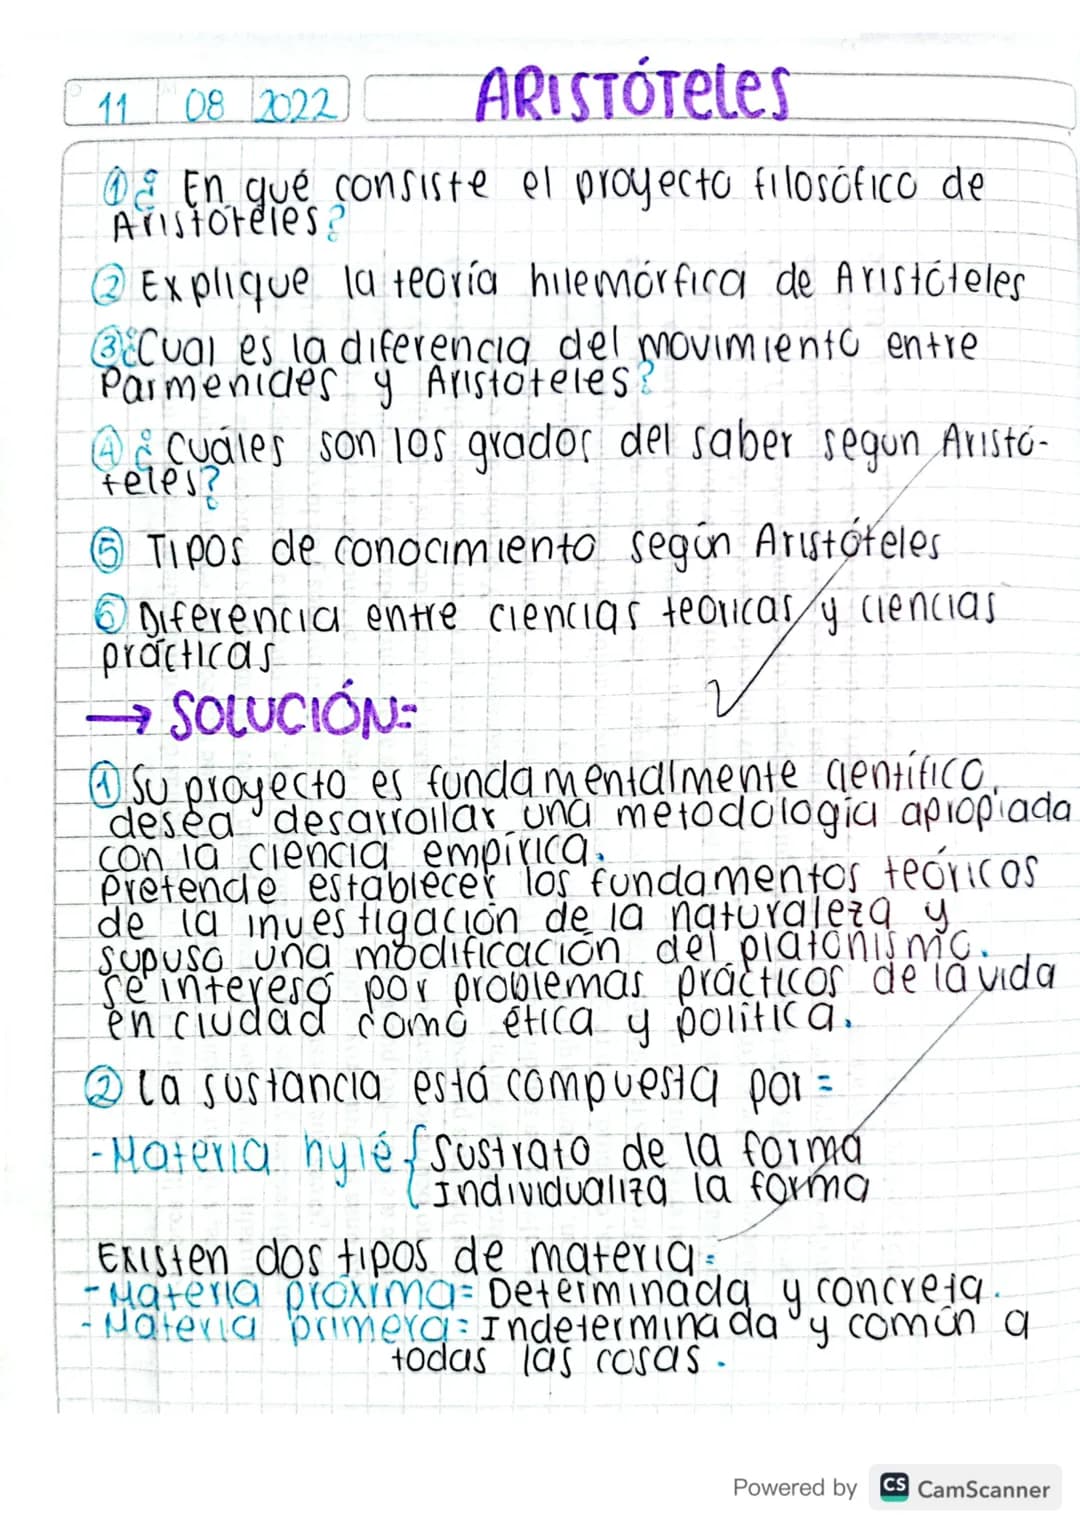 11 08 2022
ARISTÓTeles
① ¿ En qué consiste el proyecto filosófico de
Aristóteles?
② Explique la teoría hilemórfica de Aristóteles
③ ¿Cual es la diferencia del movimiento entre
Parmenides y Aristoteles?
④ ¿ Cuáles son los grados del saber segun Aristó-
teles?
⑤ Tipos de conocimiento según Aristóteles
⑥ Diferencia entre ciencias teoricas y ciencias
prácticas
→ SOLUCIÓN:
① Su proyecto es fundamentalmente científico,
desea desarrollar una metodologia apropiada
con la ciencia empírica.
Pretende establecer los fundamentos teóricos
de la investigación de la naturaleza y
supuso una modificación del platonismo.
se interesó por problemas prácticos de la vida
en ciudad como ética y politica.
② La sustancia está compuesta por =
- Materia hylé { Sustrato de la forma
Individualiza la forma
Existen dos tipos de materia:
- Materia próxima= Determinada y concreta.
- Materia primera= Indeterminada y común a
todas las cosas.
Powered by CS CamScanner